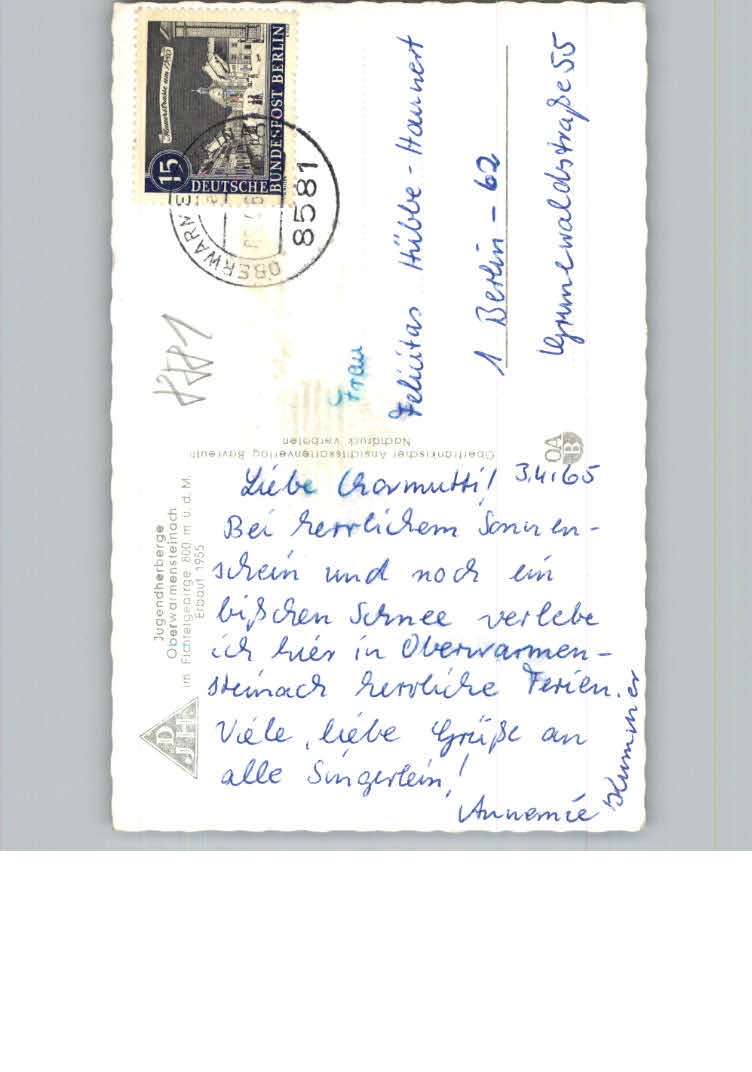 Jugendherberge
Oberwarmensteinach
im Fichtelgebirge 800 m ü. d. M.
Erbaut 1955
DJH
Liebe Chormutti! 3.4.65
Bei herrlichem Sonnen-
schein und noch ein
bißchen Schnee verlebe
ich hier in Oberwarmen-
steinach herrliche Ferien.
Viele, liebe Grüße an
alle Singerlein!
Annemie Kummer
Oberfränkischer Ansichtskartenverlag Bayreuth
Nachdruck verboten
OA
B
15
DEUTSCHE
BUNDESPOST BERLIN
8581
Frau
Felicitas Hübbe-Haunert
1 Berlin-62
Grunewaldstraße 55